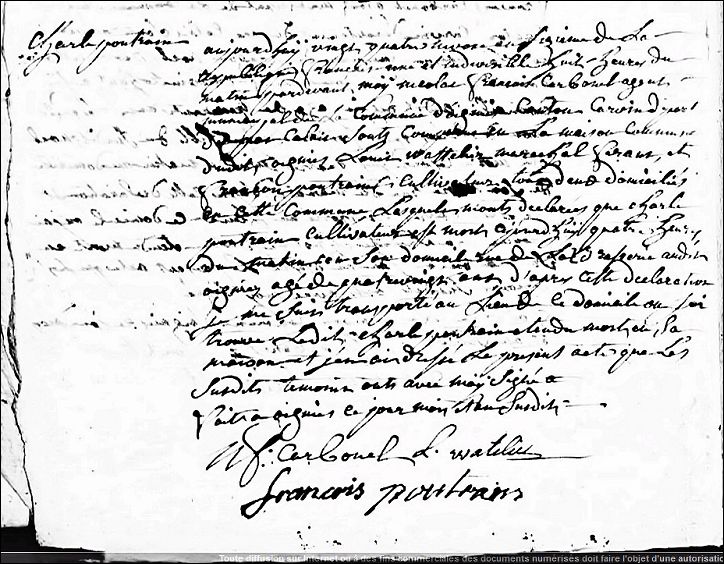 Charle poutrain
aujourdhuy vingt quatre nivose an sixieme de La
Republique française une et indivisible huit heures du
matin pardevant moy nicolas françois Carbonel agent
municipal de La Commune d'oignies Canton Carvin depart
pas Calais sont Comparu en La maison Commune
dudit oignies Louis wattelier marechal ferant et
françois poutrain Cultivateur tous deux domiciliés
en Cette Commune Lesquels m'ont declarés que charle
poutrain Cultivateur est mort aujourdhuy quatre heures
du matin en son domicile rue de La Brasserie audit
oignies agé de quatrevingt ans d'apres Cette declaration
je me suis transporté au Lieu de Ce domicile ou j'ai
trouvé Ledit Charle poutrain etendu mort en sa
maison et j'en ai dressé Le present acte que Les
susdits temoins ont avec moy signé
fait a oignies Ce jour mois et an susdit
N f. Carbonel L. watelier
françois poutrains
Toute diffusion sur Internet ou à des fins commerciales des documents numérisés doit faire l'objet d'une autorisatio